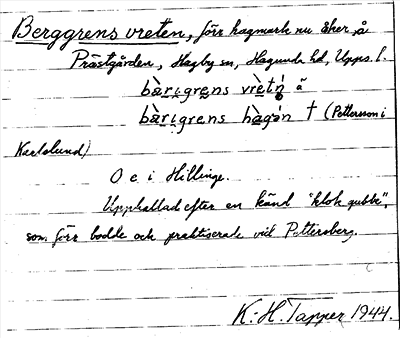 Berggrens vreten, förr hagmark nu åker, å
Prästgården, Hagby sn, Hagunda hd, Upps. l.
bàrigrens vrètn̥ å
bàrigrens hàgən † (Pettersson i
Karlslund)
O c. i Hillinge.
Uppkallad efter en känd "klok gubbe",
som förr bodde och praktiserade vid Pettersberg.
K.-H. Tapper 1944.